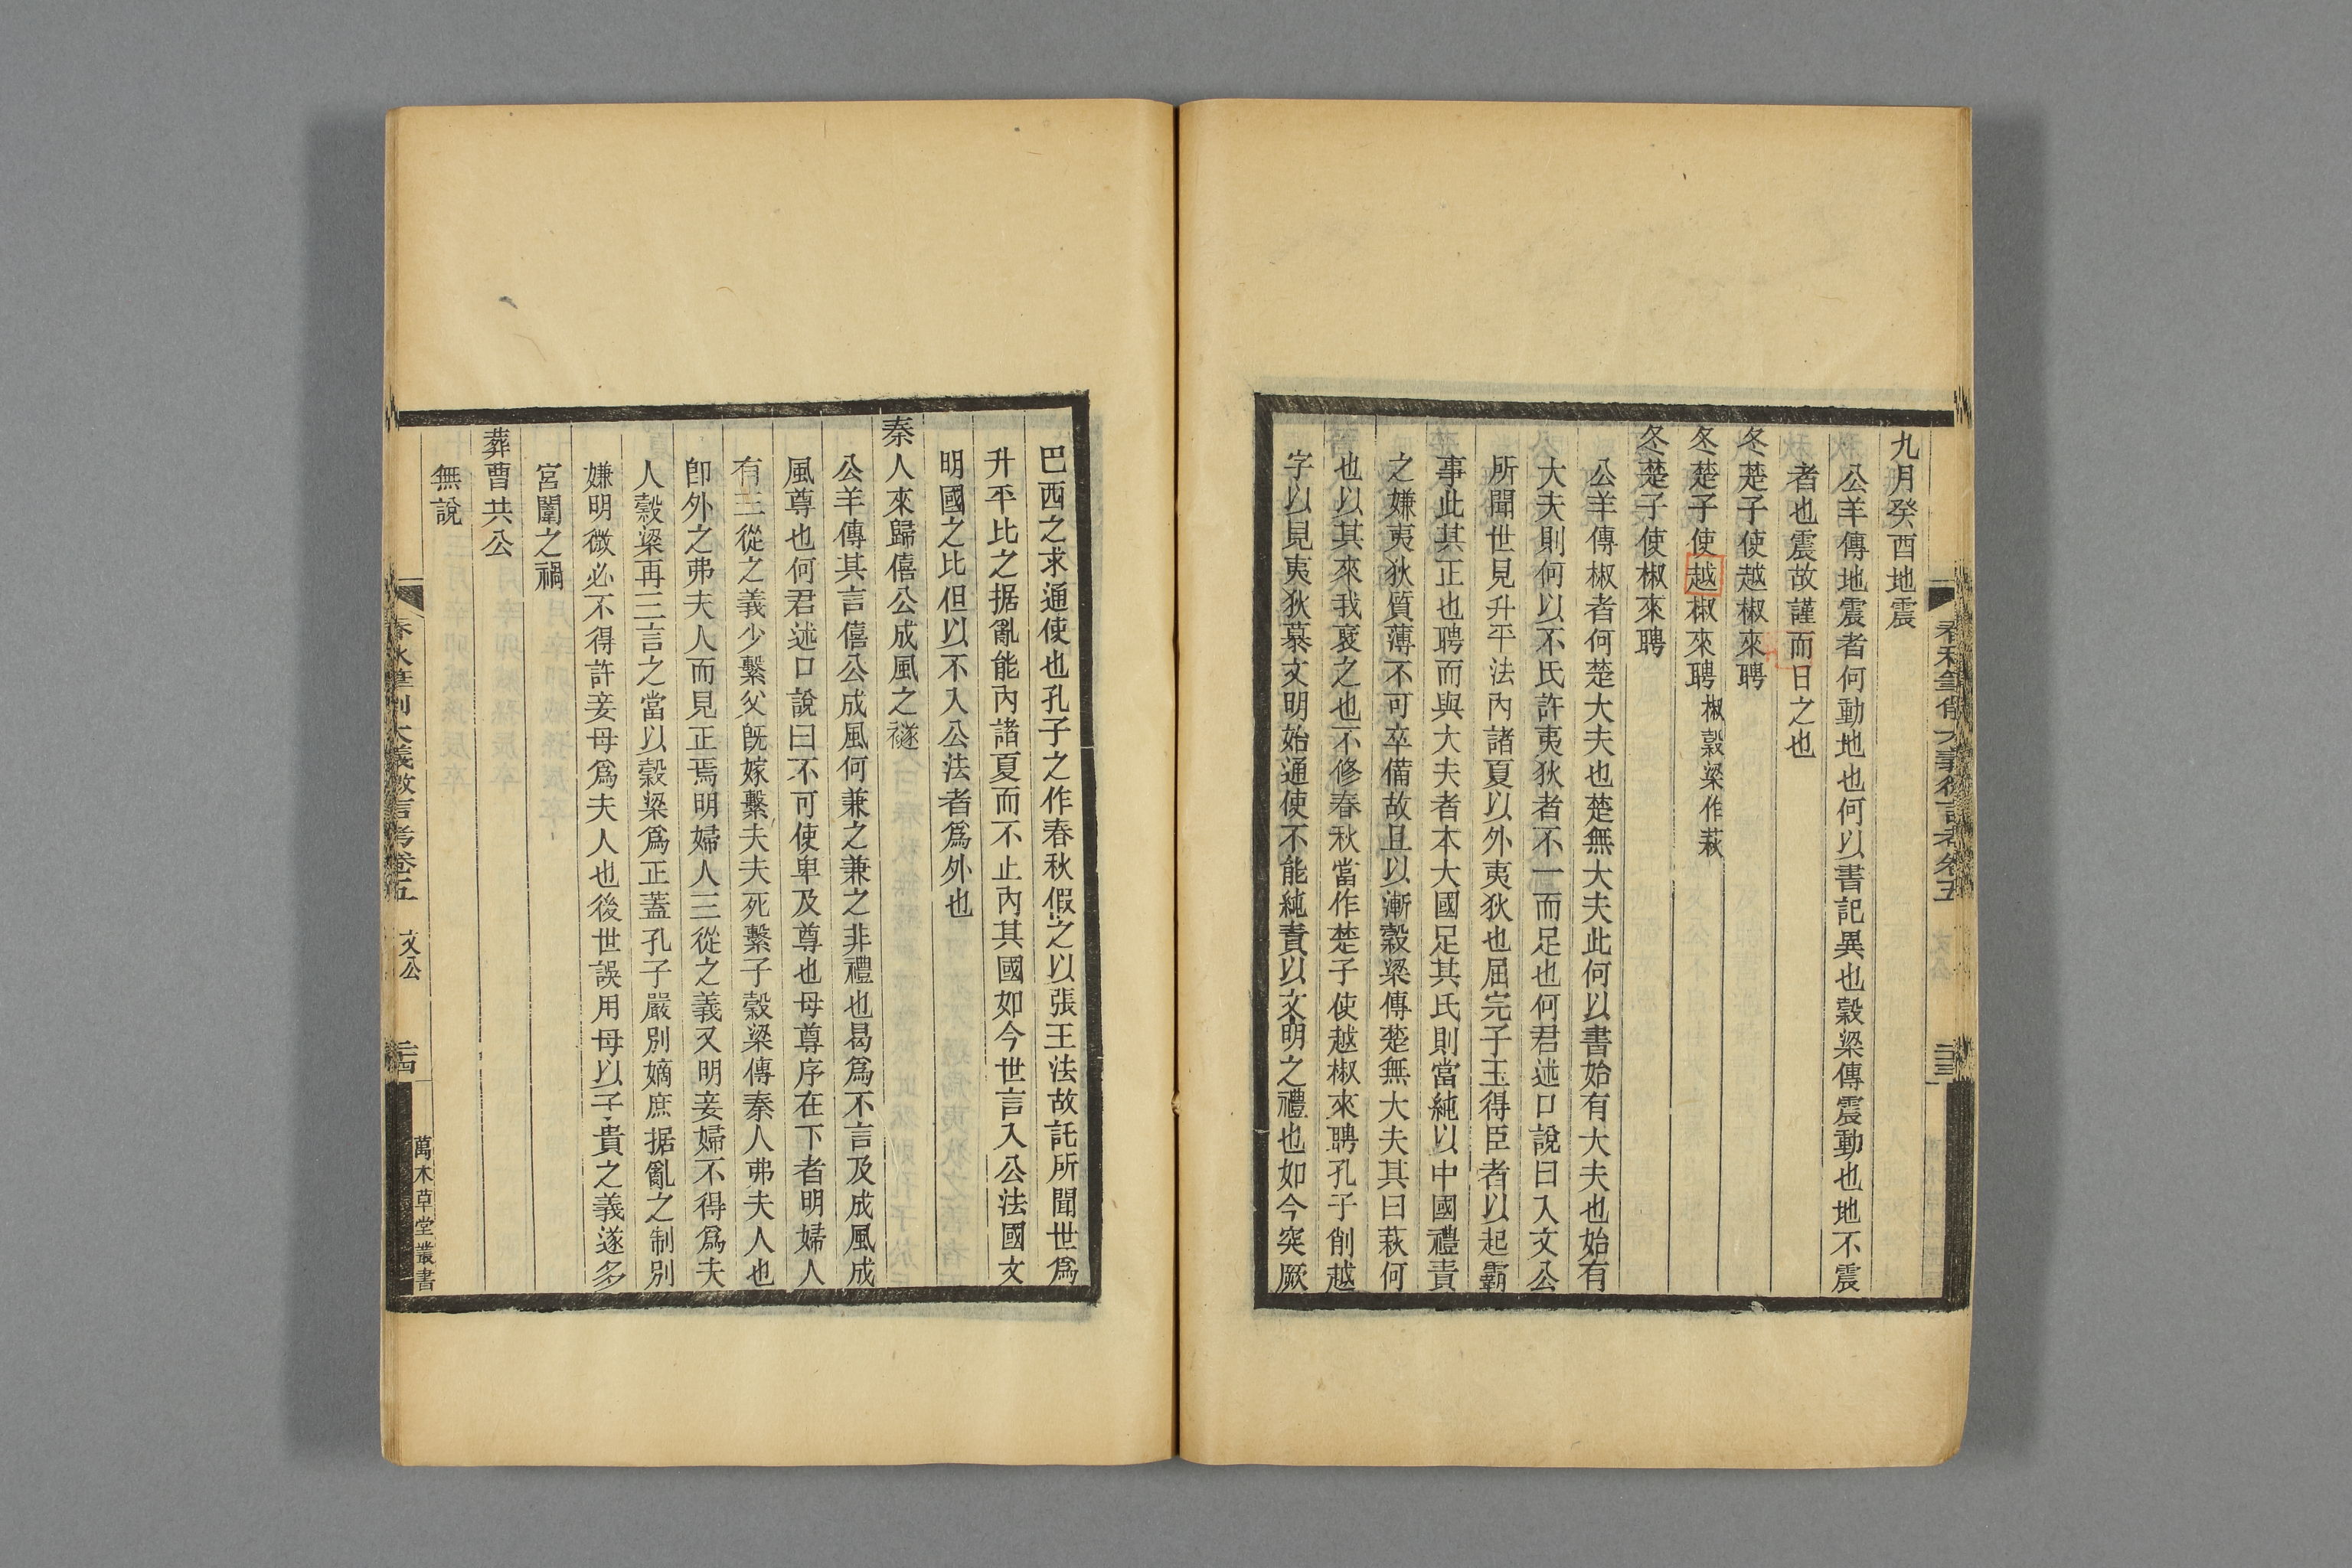 九月癸酉地震
公羊傳地震者何動地也何以書記異也穀梁傳震動也地不震
者也震故謹而日之也
冬楚子使越椒來聘
冬楚子使越椒來聘椒穀梁作萩
冬楚子使椒來聘
公羊傳椒者何楚大夫也楚無大夫此何以書始有大夫也始有
大夫則何以不氏許夷狄者不一而足也何君述口說曰入文公
所聞世見升平法內諸夏以外夷狄也屈完子玉得臣者以起霸
事此其正也聘而與大夫者本大國足其氏則當純以中國禮責
之嫌夷狄質薄不可卒備故且以漸穀梁傳楚無大夫其曰萩何
也以其來我襃之也不修春秋當作楚子使越椒來聘孔子削越
字以見夷狄慕文明始通使不能純責以文明之禮也如今突厥
春秋筆削大義微言考卷五
文公
三三
巴西之求通使也孔子之作春秋假之以張王法故託所聞世爲
升平比之据亂能內諸夏而不止內其國如今世言入公法國文
明國之比但以不入公法者爲外也
秦人來歸僖公成風之襚
公羊傳其言僖公成風何兼之兼之非禮也曷爲不言及成風成
風尊也何君述口說曰不可使卑及尊也母尊序在下者明婦人
有三從之義少繫父旣嫁繫夫夫死繫子穀梁傳秦人弗夫人也
卽外之弗夫人而見正焉明婦人三從之義又明妾婦不得爲夫
人穀梁再三言之當以穀梁爲正蓋孔子嚴別嫡庶据亂之制別
嫌明微必不得許妾母爲夫人也後世誤用母以子貴之義遂多
宮闈之禍
葬曹共公
無說
春秋筆削大義微言考卷五
文公
三四
萬木草堂叢書